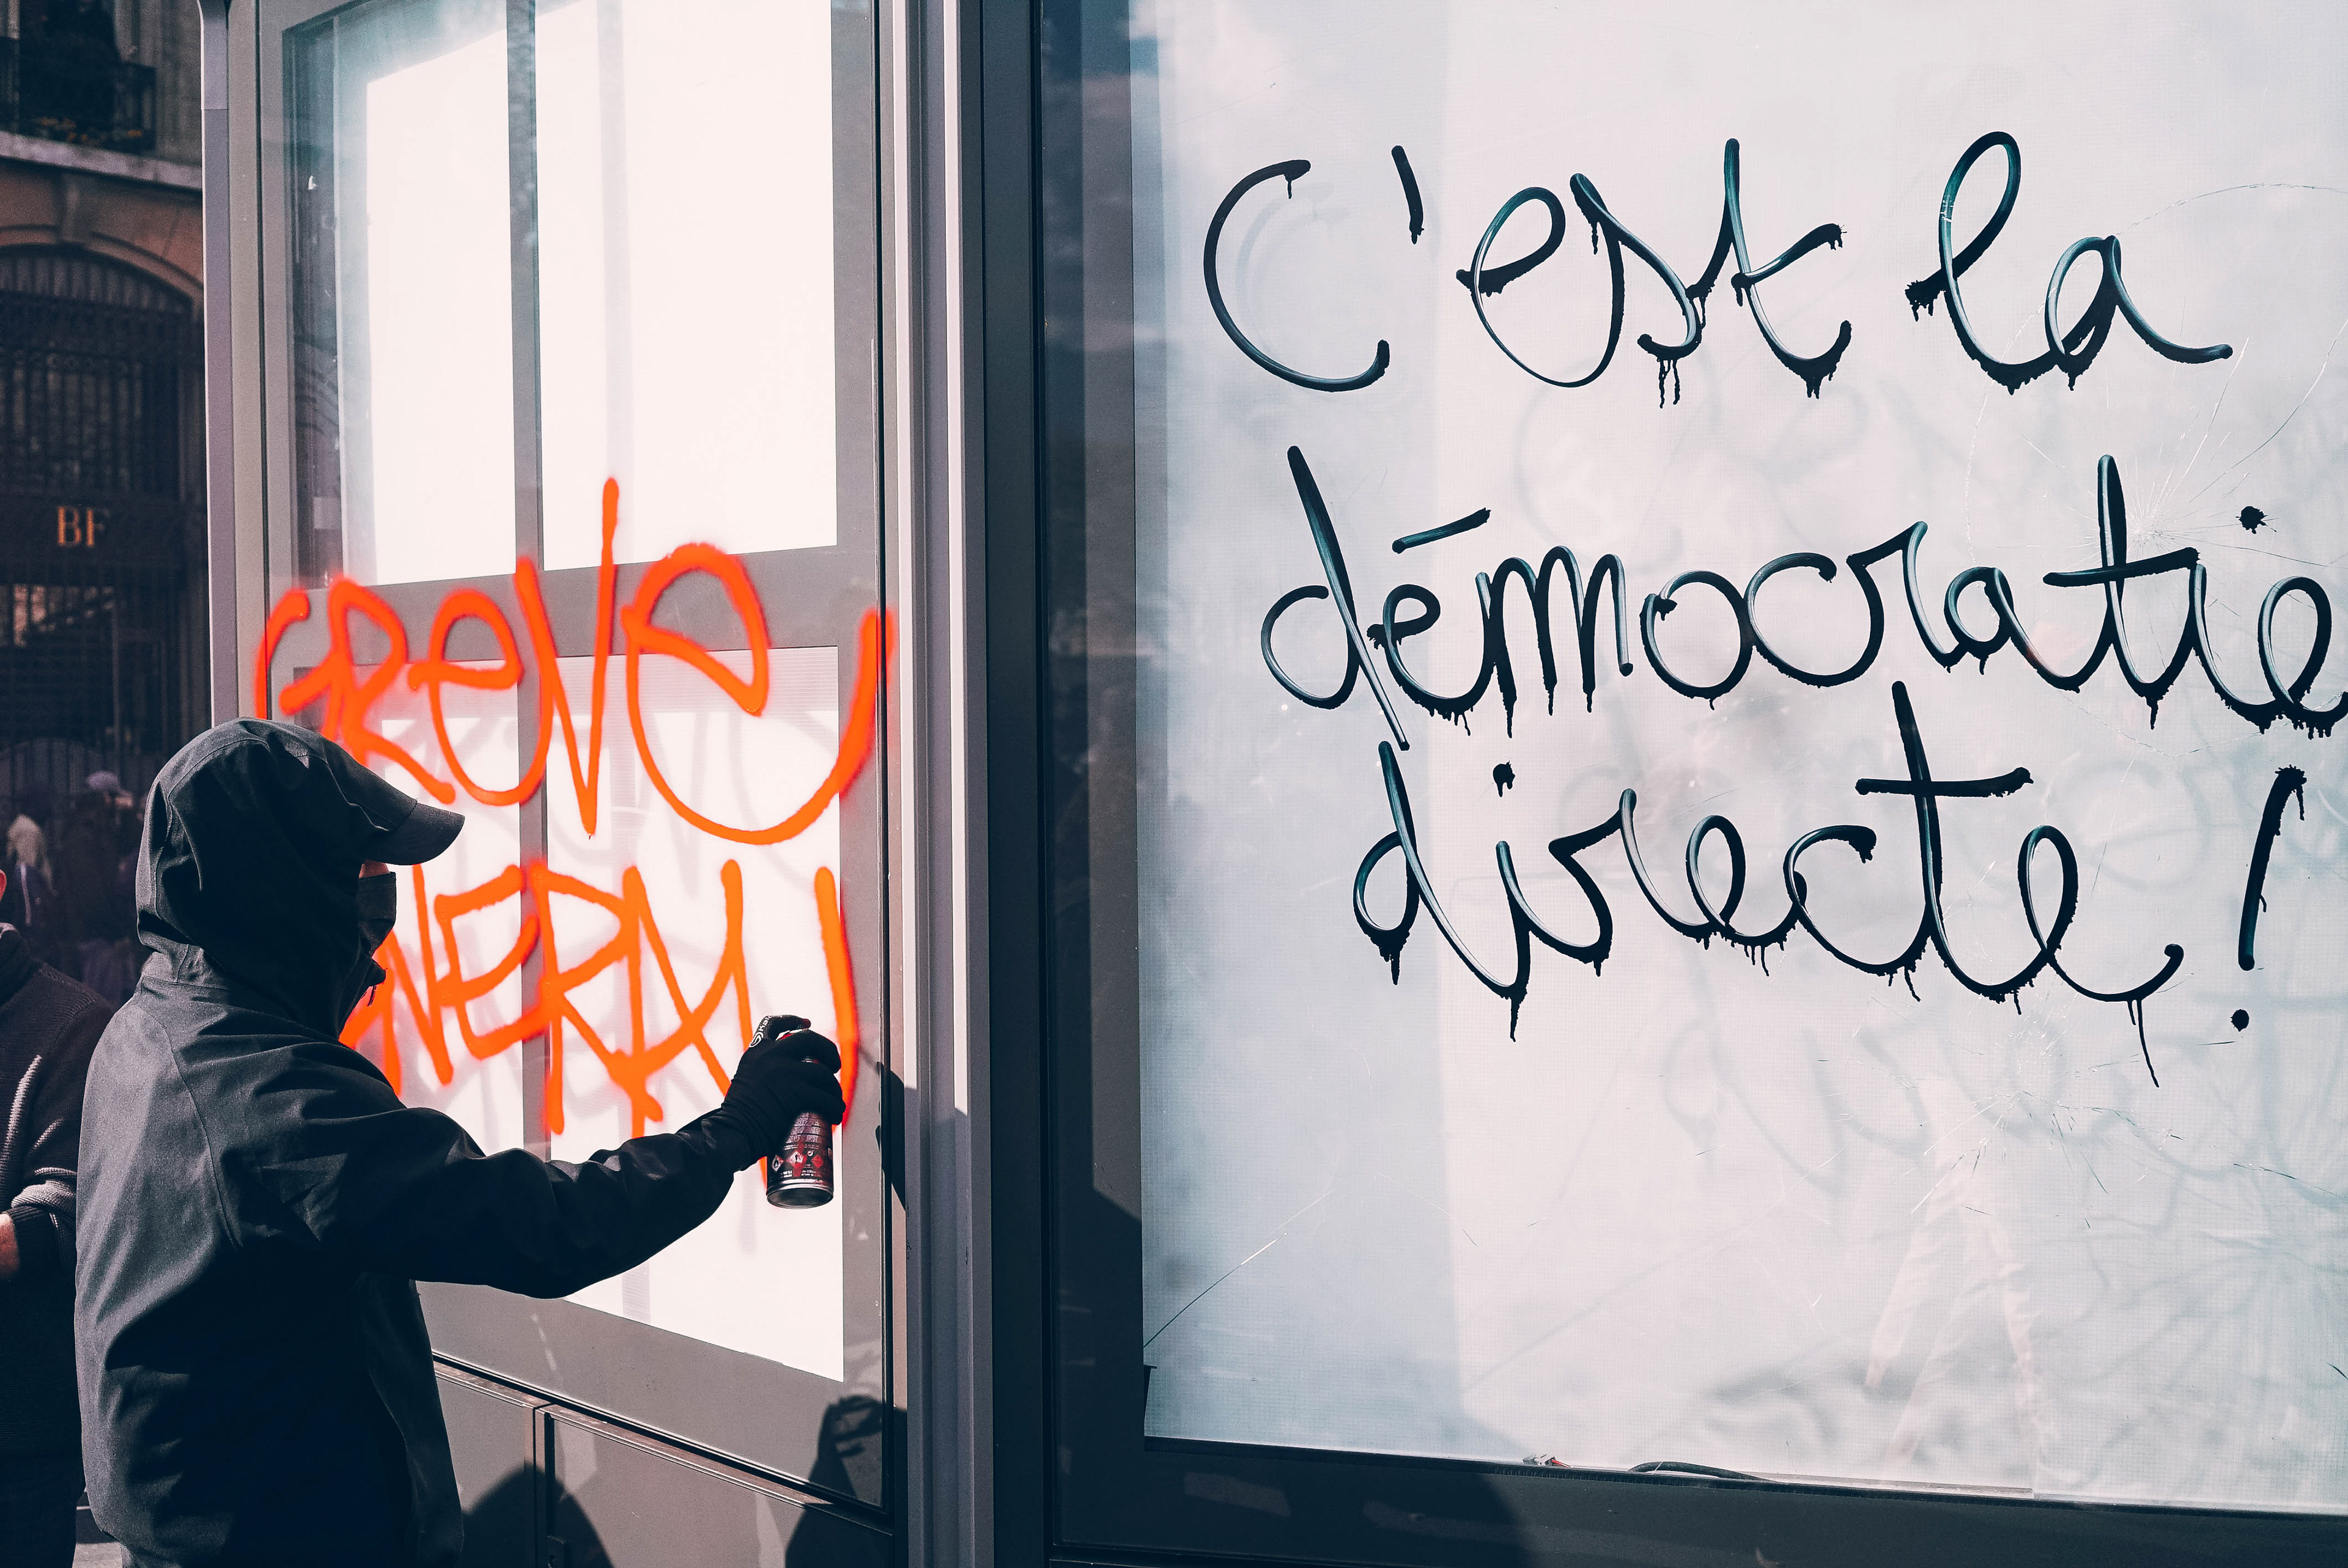 BF
GREVE
C'est la
démocratie
directe !